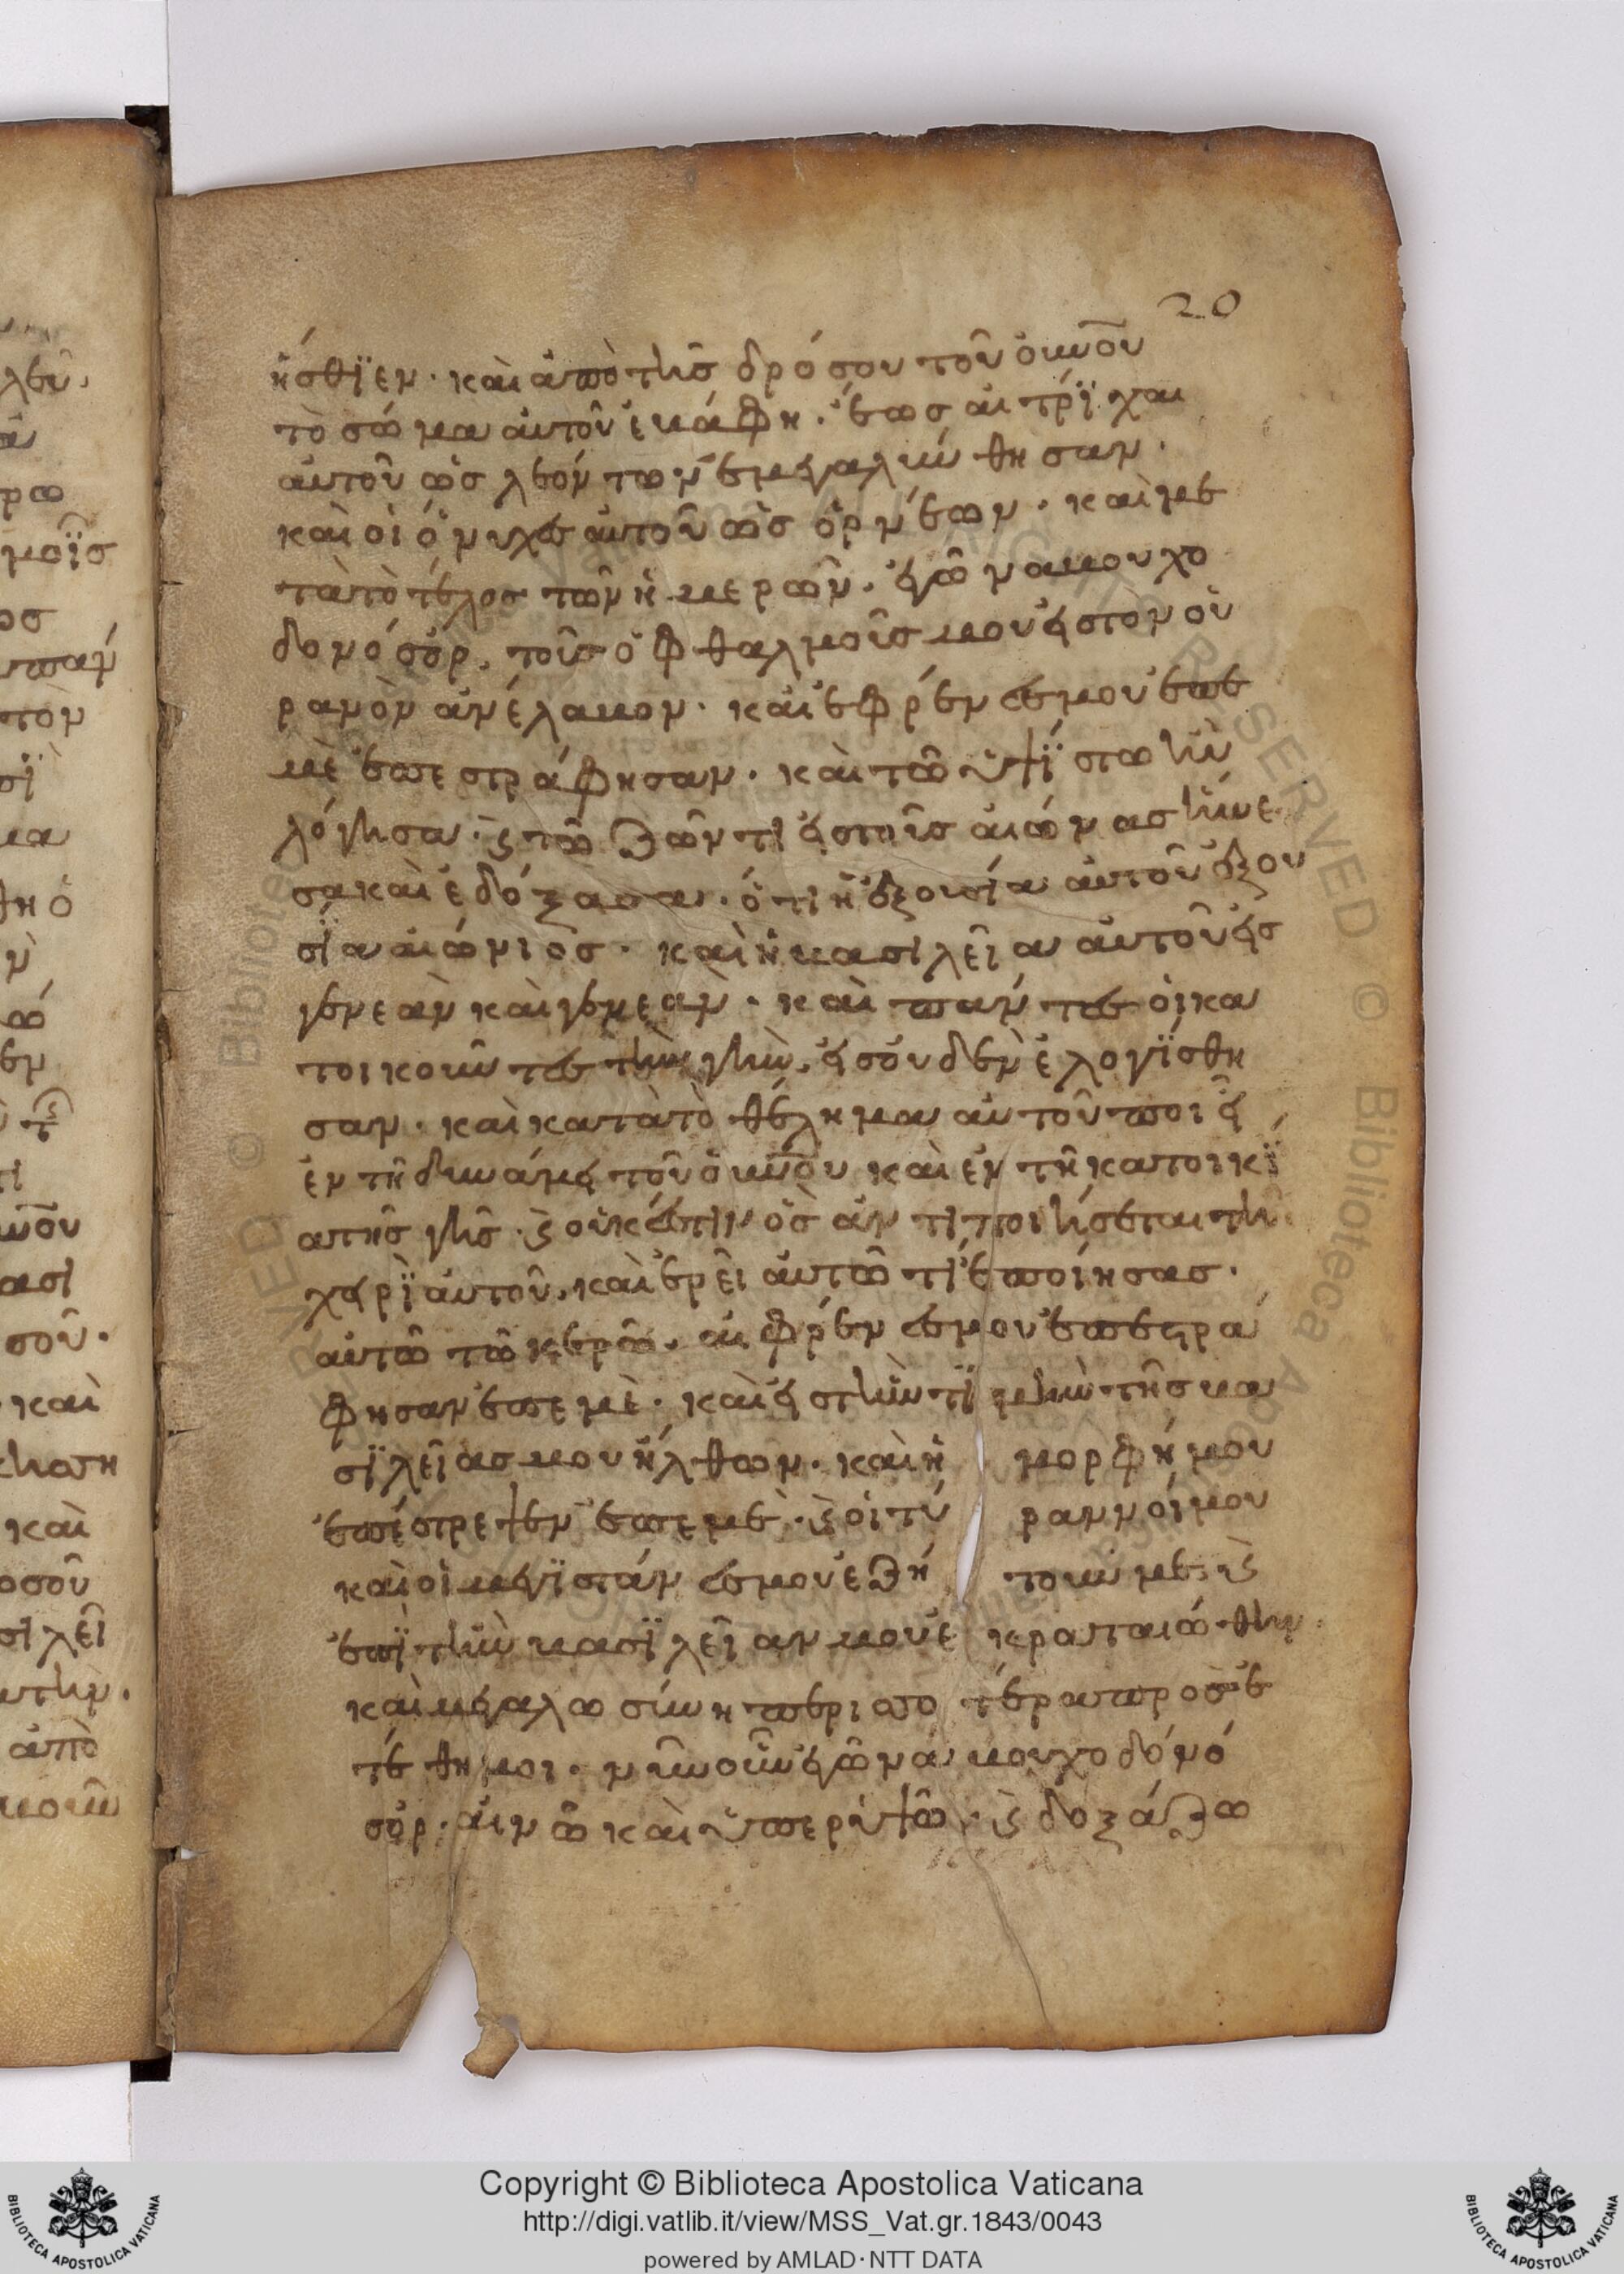 20
ήσθϊεν· καὶ ἀπὸ τῆς δρόσου τοῦ οὐνου
τὸ σῶμα αὐτοῦ ἐβάφη· ἕως αἱ τρίχαι
αὐτοῦ ὡς λεόντων ἐμεγαλύνθησαν·
καὶ οἱ ὄνυχες αὐτοῦ ὡς ὀρνέων· καὶ με
τὰ τὸ τέλος τῶν ἡμερῶν· ἐγὼ ναβουχο
δονόσορ· τοὺς ὀφθαλμούς μου εἰς τὸν οὐ
ρανὸν ἀνέλαβον· καὶ αἱ φρένες μου ἐπ ἐ
μὲ ἐπεστράφησαν· καὶ τῷ ὑψίστῳ ηὐ
λόγησα· ϛ τῷ ζῶντι εἰς τοὺς αἰῶνας ἤνε
σα καὶ ἐδόξασα· ὅτι ἡ ἐξουσία αὐτοῦ ἐξου
σία αἰώνιος· καὶ ἡ βασιλεία αὐτοῦ εἰς
γενεὰν καὶ γενεάν· καὶ πάντες οἱ κα
τοικοῦντες τὴν γῆν· εἰς οὐδὲν ἐλογίσθη
σαν· καὶ κατὰ τὸ θέλημα αὐτοῦ ποιεῖ
ἐν τῇ δυνάμει τοῦ οὐνου καὶ ἐν τῇ κατοικί
α τῆς γῆς· ϛ οὐκ ἔστιν ὃς ἀντιποιήσεται τῇ
χειρὶ αὐτοῦ· καὶ ἐρεῖ αὐτῷ τί ἐποίησας·
αὐτῷ τῷ κερῷ· αἱ φρένες μου ἐπεστρά
φησαν ἐπ ἐμὲ· καὶ εἰς τὴν τιμὴν τῆς βα
σιλείας μου ἦλθον· καὶ ἡ μορφή μου
ἐπέστρεψεν ἐπ ἐμὲ· ϛ οἱ τύραννοί μου
καὶ οἱ μεγιστάνες μου ἐζήτουν με· ϛ
ἐπὶ τὴν βασιλείαν μου ἐκραταιώθην
καὶ μεγαλωσύνη περισσοτέρα προσε
τέθη μοι· νῦν οὖν ἐγὼ ναβουχοδονό
σορ· αἰνῶ καὶ ὑπερυψῶ· ϛ δοξάζω
Copyright © Biblioteca Apostolica Vaticana
http://digi.vatlib.it/view/MSS_Vat.gr.1843/0043
powered by AMLAD · NTT DATA